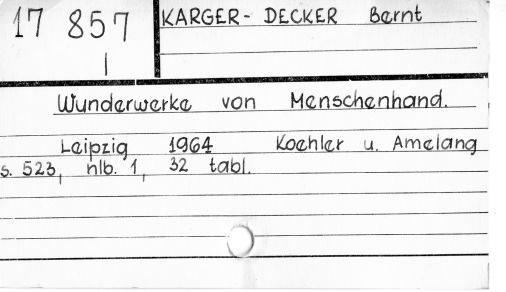 17 857
I
KARGER- DECKER Bernt
Wunderwerke von Menschenhand.
Leipzig 1964 Koehler u. Amelang
s. 523, nlb. 1, 32 tabl.